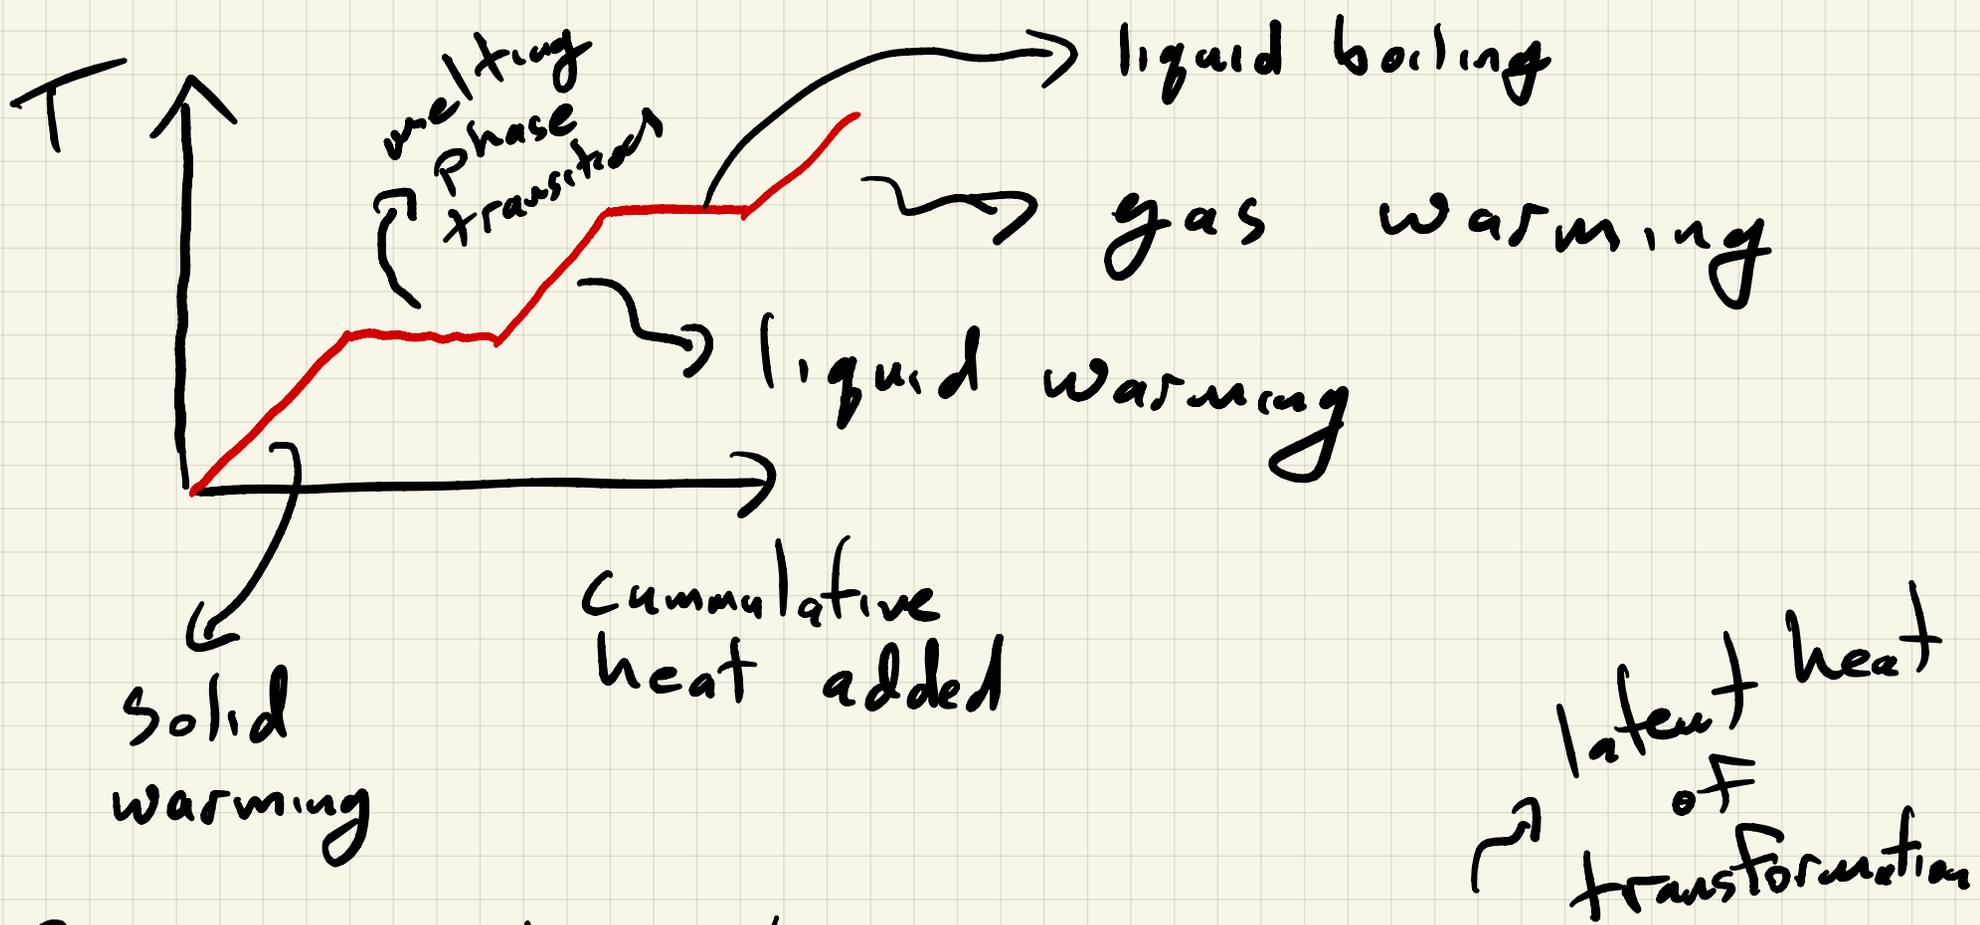 T
melting
phase
transition
liquid boiling
gas warming
liquid warming
cummulative
heat added
solid
warming
latent heat
of
transformation